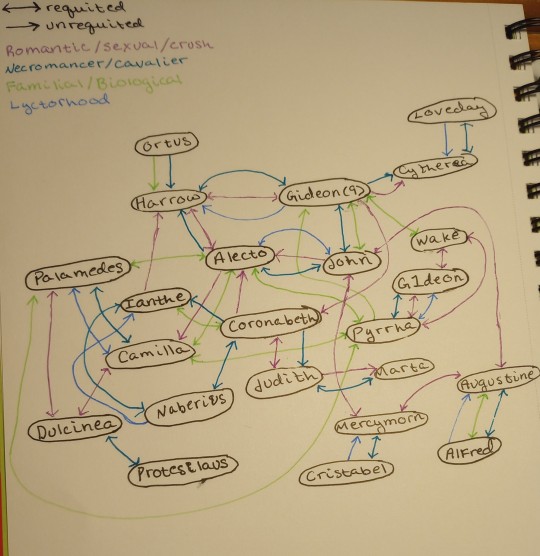 requited
unrequited
Romantic/sexual/crush
Necromancer/cavalier
Familial/Biological
Lyctorhood
Loveday
Ortus
Cytherea
Harrow
Gideon(9)
Wake
Alecto
John
Palamedes
G1deon
Ianthe
Coronabeth
Pyrrha
Camilla
Judith
Marta
Augustine
Naberius
Dulcinea
Mercymorn
Alfred
Protesilaus
Cristabel